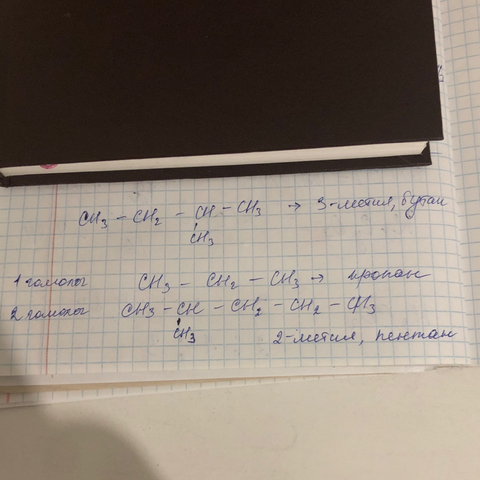 CH₃ – CH₂ – CH – CH₃ → 3-метил, бутан
CH₃
1 гомолог CH₃ – CH₂ – CH₃ → пропан
2 гомолог CH₃ – CH – CH₂ – CH₂ – CH₃
CH₃ 2-метил, пентан